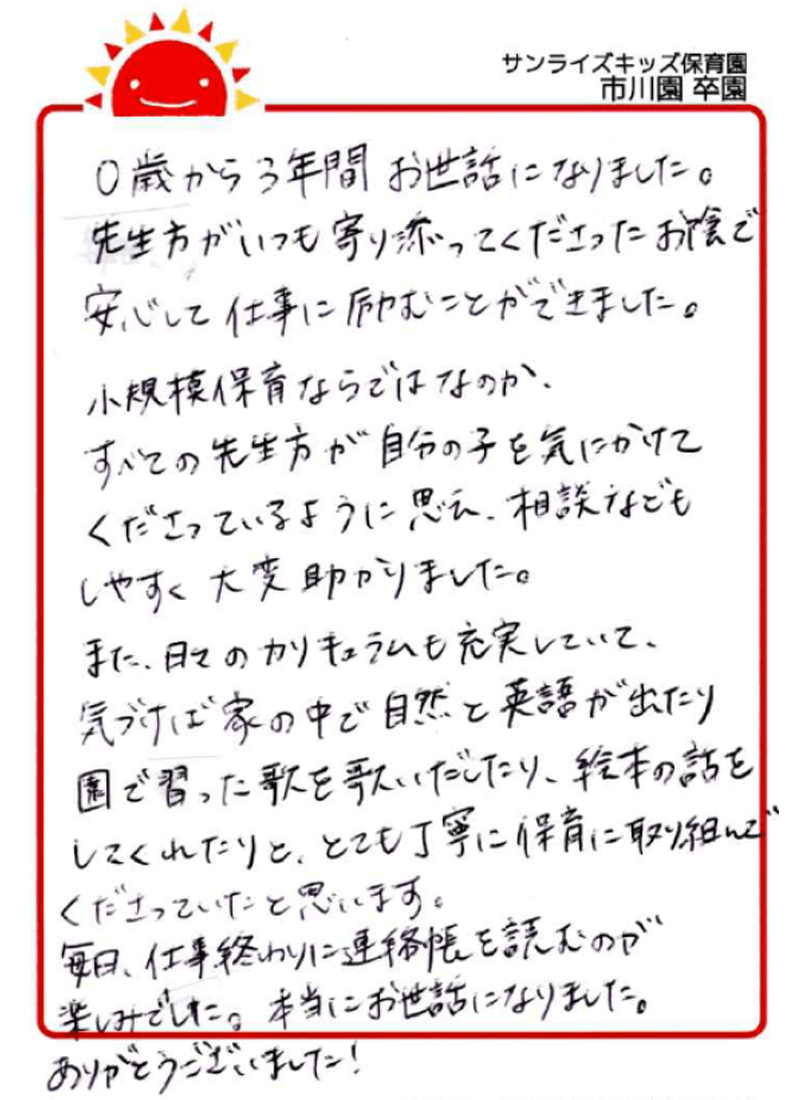 サンライズキッズ保育園
市川園 卒園
0歳から3年間 お世話になりました。
先生方がいつも寄り添ってくださったお陰で
安心して仕事に励むことができました。
小規模保育ならではなのか、
すべての先生方が自分の子を気にかけて
くださっているように思え、相談なども
しやすく大変助かりました。
また、日々のカリキュラムも充実していて、
気づけば家の中で自然と英語が出たり
園で習った歌を歌いだしたり、絵本の話を
してくれたりと、とても丁寧に保育に取り組んで
くださっていたと思います。
毎日、仕事終わりに連絡帳を読むのが
楽しみでした。本当にお世話になりました。
ありがとうございました!